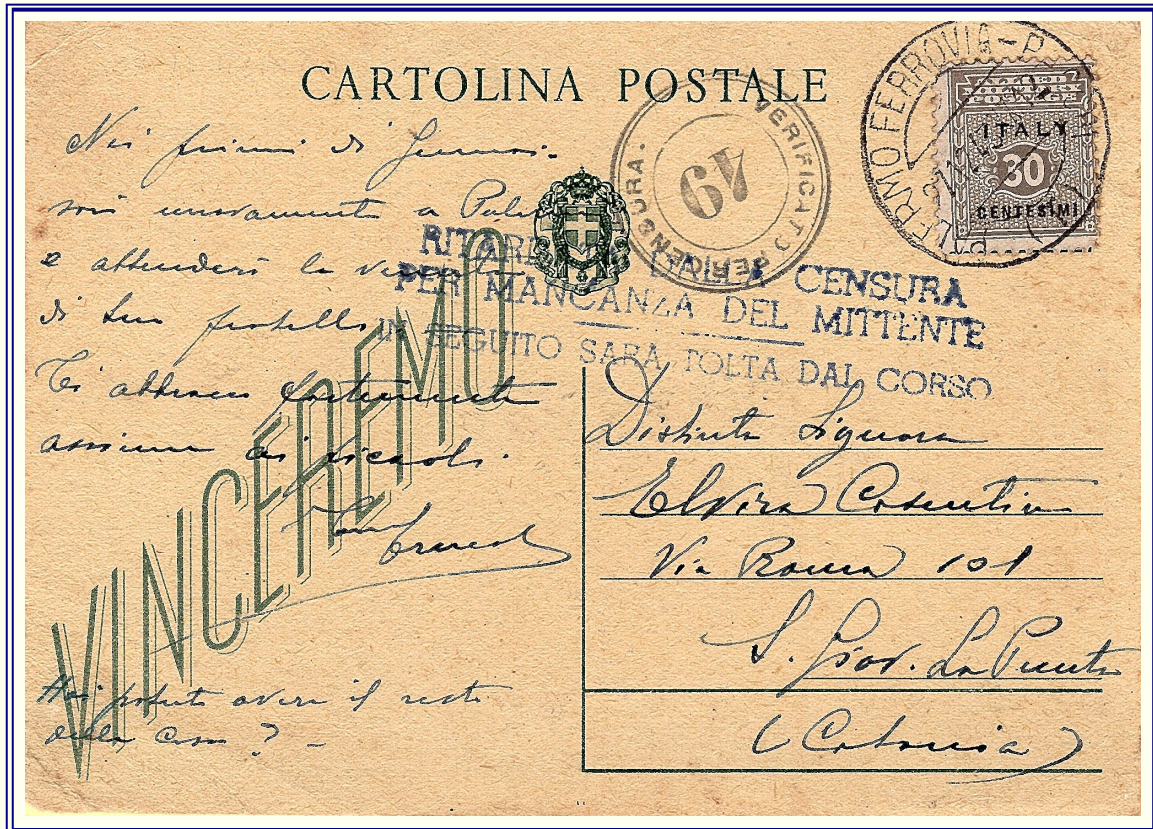 CARTOLINA POSTALE
PALERMO FERROVIA
ALLIED MILITARY POSTAGE
ITALY
30
CENTESIMI
VERIFICATO PER CENSURA.
67
RITARD DALLA CENSURA
PER MANCANZA DEL MITTENTE
IN SEGUITO SARA TOLTA DAL CORSO
Nei primi di
sarò nuovamente a
e attenderò la
di tuo fratello
Ti abbraccio fortemente
assieme ai piccoli.
VINCEREMO
Hai potuto avere il resto
della casa ? -
Distinta Signora
Elvira Cosentino
Via Roma 101
S. Giov. La Punta
(Catania)